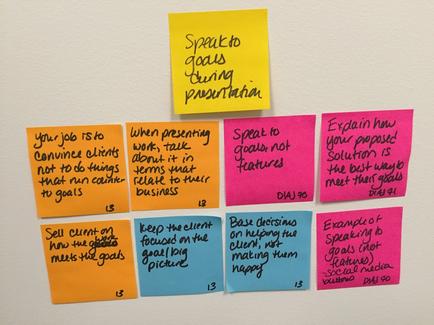 Speak to
goals
during
presentation
your job is to
convince clients
not to do things
that run counter
to goals
13
When presenting
work, talk
about it in
terms that
relate to their
business
13
Speak to
goals, not
features
DIAJ 70
Explain how
your proposed
solution is
the best way to
meet their goals
DIAJ 71
Sell client on
how the work
meets the goals
13
Keep the client
focused on the
goal/big
picture
13
Base decisions
on helping the
client, not
making them
happy
13
Example of
speaking to
goals (not
features)
-social media
buttons
DIAJ 70